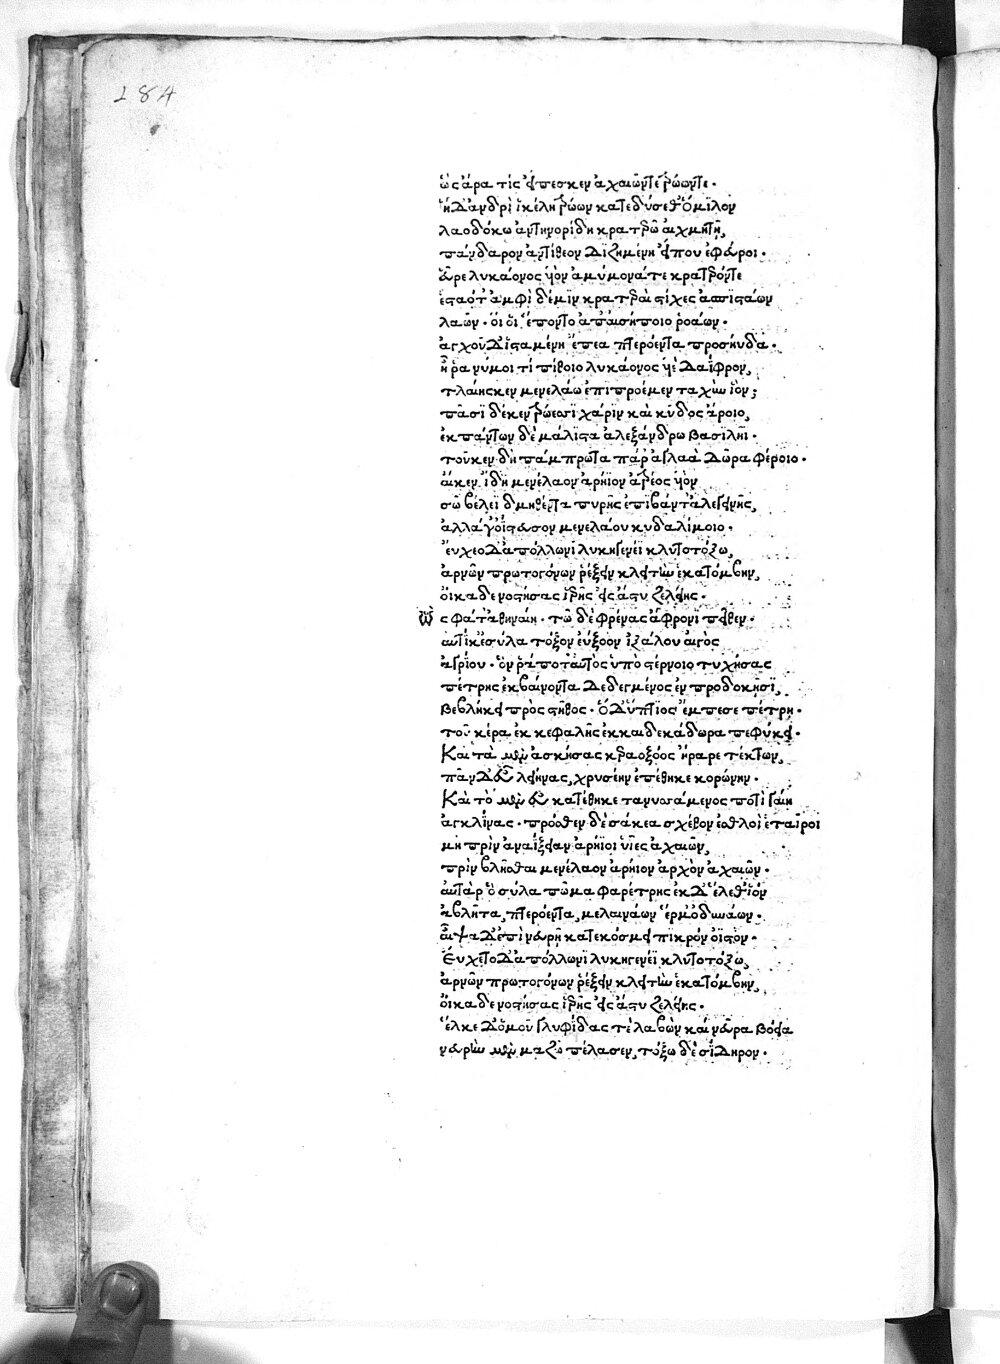 184
ὣς ἄρα τίς εἴπεσκεν ἀχαιῶν τε τρώων τε·
ἡ δ' ἀνδρὶ ἰκέλη τρώων κατεδύσεθ' ὅμιλον
λαοδόκω ἀντηνορίδη κρατερῶ αἰχμητῆ,
πάνδαρον ἀντίθεον διζημένη εἴ που ἐφεύροι·
εὗρε λυκάονος υἱὸν ἀμύμονά τε κρατερόν τε
ἑσταότ' ἀμφὶ δέ μιν κρατεραὶ στίχες ἀσπιστάων
λαῶν· οἵ οἱ ἕποντο ἀπ' αἰσήποιο ῥοάων·
ἀγχοῦ δ' ἱσταμένη ἔπεα πτερόεντα προσηύδα·
ἦ ῥα νύ μοί τι πίθοιο λυκάονος υἱὲ δαΐφρον,
τλαίης κεν μενελάω ἐπιπροέμεν ταχὺν ἰόν;
πᾶσι δέ κεν τρώεσσι χάριν καὶ κῦδος ἄροιο,
ἐκ πάντων δὲ μάλιστα ἀλεξάνδρω βασιλῆϊ·
τοῦ κεν δὴ πάμπρωτα πάρ' ἀγλαὰ δῶρα φέροιο·
αἴ κεν ἴδη μενέλαον ἀρήϊον ἀτρέος υἱὸν
σῶ βέλεϊ δμηθέντα πυρῆς ἐπιβάντ' ἀλεγεινῆς,
ἀλλά γ' ὀΐστευσον μενελάου κυδαλίμοιο·
εὔχεο δ' ἀπόλλωνι λυκηγενέϊ κλυτοτόξω,
ἀρνῶν πρωτογόνων ῥέξειν κλειτὴν ἑκατόμβην,
οἴκαδε νοστήσας ἱερῆς εἰς ἄστυ ζελείης·
ὣς φάτ' ἀθηναίη· τῶ δὲ φρένας ἄφρονι πεῖθεν·
αὐτίκ' ἐσύλα τόξον ἐΰξοον ἰξάλου αἰγὸς
ἀγρίου· ὅν ῥά ποτ' αὐτὸς ὑπὸ στέρνοιο τυχήσας
πέτρης ἐκβαίνοντα δεδεγμένος ἐν προδοκῆσι,
βεβλήκει πρὸς στῆθος· ὁ δ' ὕπτιος ἔμπεσε πέτρη·
τοῦ κέρα ἐκ κεφαλῆς ἑκκαιδεκάδωρα πεφύκει·
Καὶ τὰ μὲν ἀσκήσας κεραοξόος ἤραρε τέκτων,
πᾶν δ' εὖ λειήνας, χρυσέην ἐπέθηκε κορώνην·
Καὶ τὸ μὲν εὖ κατέθηκε τανυσσάμενος ποτὶ γαίη
ἀγκλίνας· πρόσθεν δὲ σάκεα σχέθον ἐσθλοὶ ἑταῖροι
μὴ πρὶν ἀναΐξειαν ἀρήϊοι υἷες ἀχαιῶν,
πρὶν βλῆσθαι μενέλαον ἀρήιον ἀρχὸν ἀχαιῶν·
αὐτὰρ ὁ σύλα πῶμα φαρέτρης ἐκ δ' ἕλετ' ἰὸν
ἀβλῆτα, πτερόεντα, μελαινάων ἕρμ' ὀδυνάων·
αἶψα δ' ἐπὶ νευρῆ κατεκόσμει πικρὸν ὀϊστόν·
Εὔχετο δ' ἀπόλλωνι λυκηγενέϊ κλυτοτόξω,
ἀρνῶν πρωτογόνων ῥέξειν κλειτὴν ἑκατόμβην,
οἴκαδε νοστήσας ἱερῆς εἰς ἄστυ ζελείης·
ἕλκε δ' ὁμοῦ γλυφίδας τὲ λαβὼν καὶ νεῦρα βόεια
νευρὴν μὲν μαζῶ πέλασεν, τόξω δὲ σίδηρον·